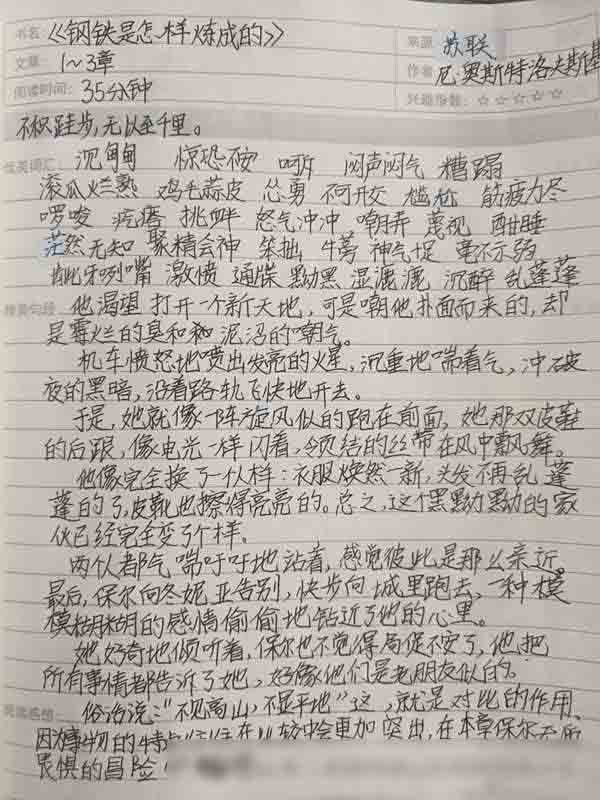 书名 《钢铁是怎样炼成的》
来源 苏联
文章: 1~3章
作者 尼·奥斯特洛夫斯基
阅读时间: 35分钟
兴趣指数: ☆☆☆☆☆
不积跬步,无以至千里。
优美词汇: 沉甸甸 惊恐不安 呵斥 闷声闷气 糟蹋
滚瓜烂熟 鸡毛蒜皮 怂勇 不可开交 尴尬 筋疲力尽
啰唆 疙瘩 挑衅 怒气冲冲 嘲弄 蔑视 酣睡
茫然无知 聚精会神 笨拙 牛蒡 神气十足 毫不示弱
龇牙咧嘴 激愤 通牒 黝黑 湿漉漉 沉醉 乱蓬蓬
精美句段 他渴望打开一个新天地,可是嘲他扑面而来的,却
是霉烂的臭和和泥沼的嘲气。
机车愤怒地喷出发亮的火星,沉重地喘着气,冲破
夜的黑暗,沿着路轨飞快地开去。
于是,她就像一阵旋风似的跑在前面,她那双皮鞋
的后跟,像电光一样闪着,领结的丝带在风中飘舞。
他像完全换了个人样:衣服焕然一新,头发不再乱蓬
蓬的了,皮靴也擦得亮亮的。总之,这个黑黝黝的家
伙已经完全变了个样。
两个人都气喘吁吁地站着,感觉彼此是那么亲近。
最后,保尔向冬妮亚告别,快步向城里跑去,一种模
模糊糊的感情偷偷地钻近了他的心里。
她好奇地倾听着,保尔也不觉得局促不安了,他把
所有事情都告诉了她,好像他们是老朋友似的。
阅读感想: 俗话说:“不见高山,不显平地”这,就是对比的作用、
因为事物的特 较中会更加突出,在本章保尔无所
畏惧的冒险